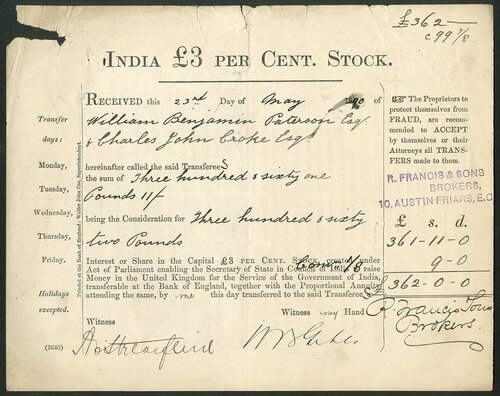 £362—
c 99 7/8
INDIA £3 PER CENT. STOCK.
RECEIVED this 23rd Day of May 1890
William Benjamin Paterson Esq
& Charles John Croke Esqr
hereinafter called the said Transferees
the sum of Three hundred & sixty one
Pounds 11/-
being the Consideration for Three hundred & sixty
two Pounds
Interest or Share in the Capital £3 PER CENT. STOCK, created under
Act of Parliament enabling the Secretary of State in Council of India to raise
Money in the United Kingdom for the Service of the Government of India,
transferable at the Bank of England, together with the Proportional Annuity
attending the same, by me this day transferred to the said Transferees
Witness my Hand
Witness
(2640)
Transfer
days:
Monday,
Tuesday,
Wednesday,
Thursday,
Friday.
Holidays
excepted.
Printed at the Bank of England: Walter John Coe, Superintendent.
The Proprietors to
protect themselves from
FRAUD, are recom-
mended to ACCEPT
by themselves or their
Attorneys all TRANS-
FERS made to them.
R. FRANCIS & SONS
BROKERS,
10, AUSTIN FRIARS, E.C.
£ s. d.
361-11-0
9-0
£362-0-0
R. Francis & Sons
Brokers.